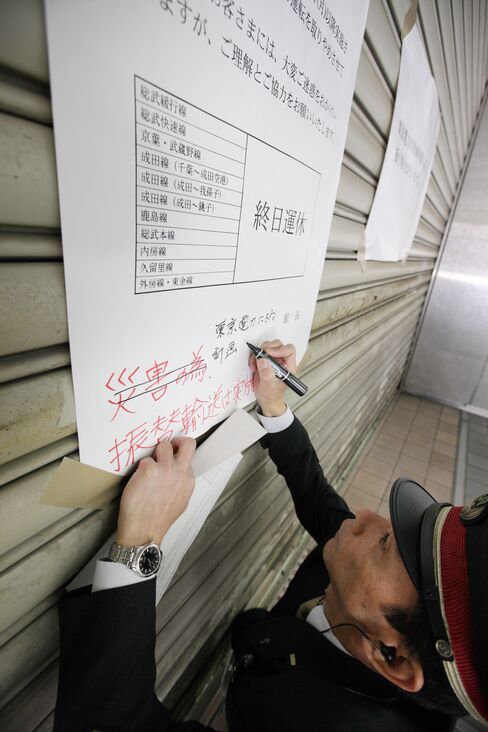 客さまには、大変ご迷惑をおかけい
ますが、ご理解とご協力をお願いいたします
総武緩行線
総武快速線
京葉・武蔵野線
成田線（千葉～成田空港）
成田線（成田～我孫子）
成田線（成田～銚子）
鹿島線
総武本線
内房線
久留里線
外房線・東金線
終日運休
駅長
東京電力による
計画
災害の為、
振替輸送は実